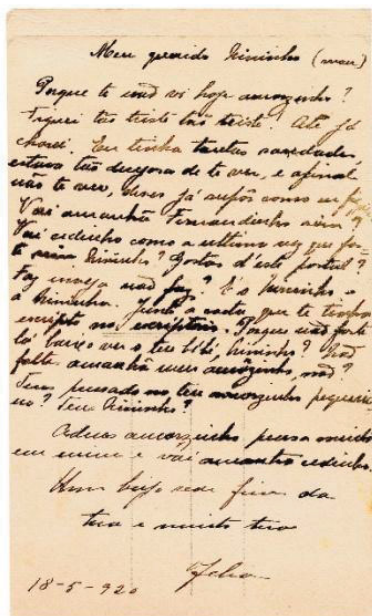 Meu querido Nininho (mau)
Porque te não vi hoje amorzinho?
Fiquei tão triste tão triste! Até já
chorei. Eu tinha tantas saudades,
estava tão desejosa de te ver, e afinal
não te ver, deves já supôr como eu
Vai amanhã Fernandinho sim?
Vai cedinho como a ultima vez que
te Nininho? Gostas d'este postal?
Faz inveja não faz? É o Nininho e
a Nininha. Junto a carta que te tinha
escripto no escriptorio. Porque não foste
lá baixo ver o teu bébé, Nininho? Não
faltes amanhã meu amôrzinho, não?
Tens pensado no teu amorzinho
no? Tens Nininho?
Adeus amorzinho pensa muito
em mim e vai amanhã cedinho.
Um beijo sem fim da
tua e muito tua
18-5-920